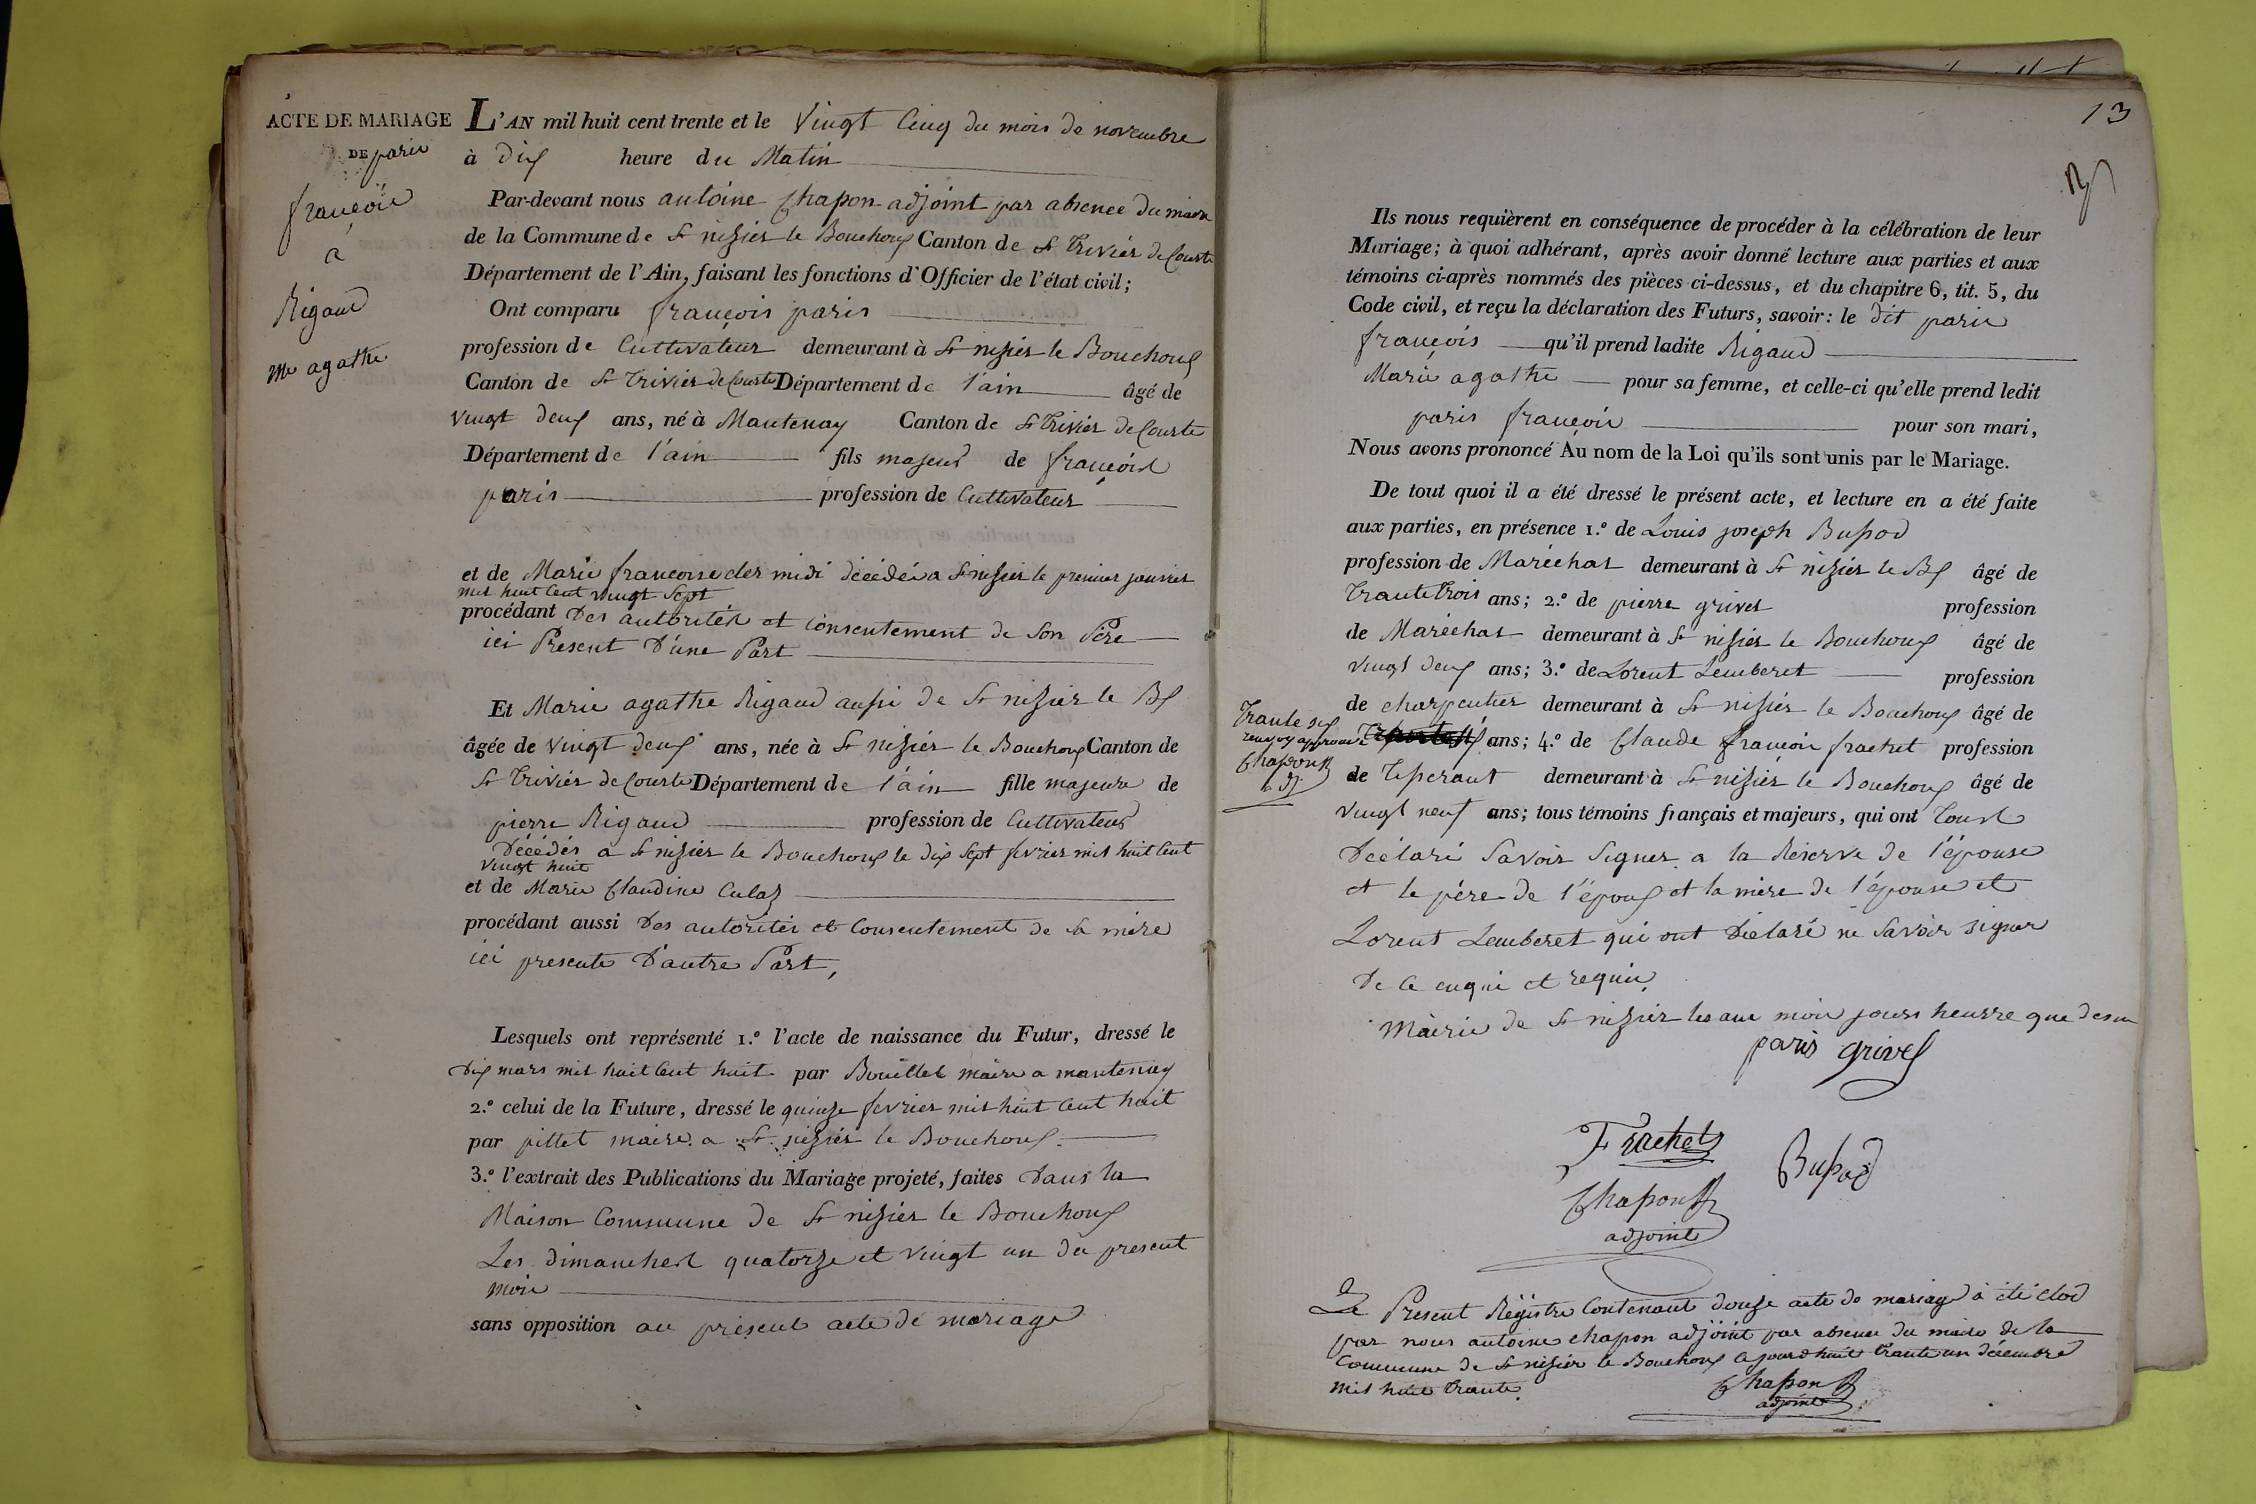 ACTE DE MARIAGE
DE paris
françois
a
Rigaud
me agathe
L'AN mil huit cent trente et le Vingt Cinq du mois de novembre
à dix heure du Matin
Par-devant nous antoine Chapon adjoint par absence du maire
de la Commune de St nizier le Bouchoux Canton de St Trivier de Courte
Département de l'Ain, faisant les fonctions d'Officier de l'état civil;
Ont comparu françois paris
profession de Cultivateur demeurant à St nizier le Bouchoux
Canton de St Trivier de Courte Département de l'ain âgé de
vingt deux ans, né à Mantenay Canton de St Trivier de Courte
Département de l'ain fils majeur de françois
paris profession de Cultivateur
et de Marie françoise der midi décédé a St nizier le premier janvier
mil huit Cent vingt Sept
procédant Des autorités et consentement de Son Père
ici Present D'une Part
Et Marie agathe Rigaud aussi de St nizier le Bx
âgée de vingt deux ans, née à St nizier le Bouchoux Canton de
St Trivier de Courte Département de l'ain fille majeure de
pierre Rigaud profession de Cultivateur
Décédér a St nizier le Bouchoux le dix Sept fevrier mil huit Cent
vingt huit
et de Marie Claudine Culaz
procédant aussi Des autorités et Consentement de sa mère
ici presente D'autre Part,
Lesquels ont représenté 1.º l'acte de naissance du Futur, dressé le
Dix mars mil huit Cent huit par Bouillet maire a mantenay
2.º celui de la Future, dressé le quinze fevrier mil huit Cent huit
par pillet maire a St nizier le Bouchoux
3.º l'extrait des Publications du Mariage projeté, faites Dans la
Maison Commune de St nizier le Bouchoux
Les dimanches quatorze et vingt un du present
mois
sans opposition au présent acte de mariage
13
Ils nous requièrent en conséquence de procéder à la célébration de leur
Mariage; à quoi adhérant, après avoir donné lecture aux parties et aux
témoins ci-après nommés des pièces ci-dessus, et du chapitre 6, tit. 5, du
Code civil, et reçu la déclaration des Futurs, savoir: le dit paris
françois qu'il prend ladite Rigaud
Marie agathe pour sa femme, et celle-ci qu'elle prend ledit
paris françois pour son mari,
Nous avons prononcé Au nom de la Loi qu'ils sont unis par le Mariage.
De tout quoi il a été dressé le présent acte, et lecture en a été faite
aux parties, en présence 1.º de Louis joseph Bussod
profession de Maréchal demeurant à St nizier le Bx âgé de
Trante trois ans; 2.º de pierre grivel profession
de Maréchal demeurant à St nizier le Bouchoux âgé de
vingt deux ans; 3.º de Lorent Lemberet profession
de charpentier demeurant à St nizier le Bouchoux âgé de
ans; 4.º de Claude françois frachet profession
de Tisserant demeurant à St nizier le Bouchoux âgé de
vingt neuf ans; tous témoins français et majeurs, qui ont Tous
Déclaré Savoir Signer a la Réserve de l'épouse
et le père de l'époux et la mère de l'épouse et
Lorent Lemberet qui ont Déclaré ne Savoir signer
De ce enqui et requis
Trante six
renvoy approuvé
Chapon
adj.
Mairie de St nizier les an mois jours heurre que desu
paris grivel
Frachet
Bussod
Chapon
adjoint
Le Present Régistre Contenant douze acte de mariage à été clod
par nous antoine chapon adjoint par absence du maire de la
Commune de St nizier le Bouchoux ce jourdhuit trante un décembre
mil huit trante.
Chapon
adjoint